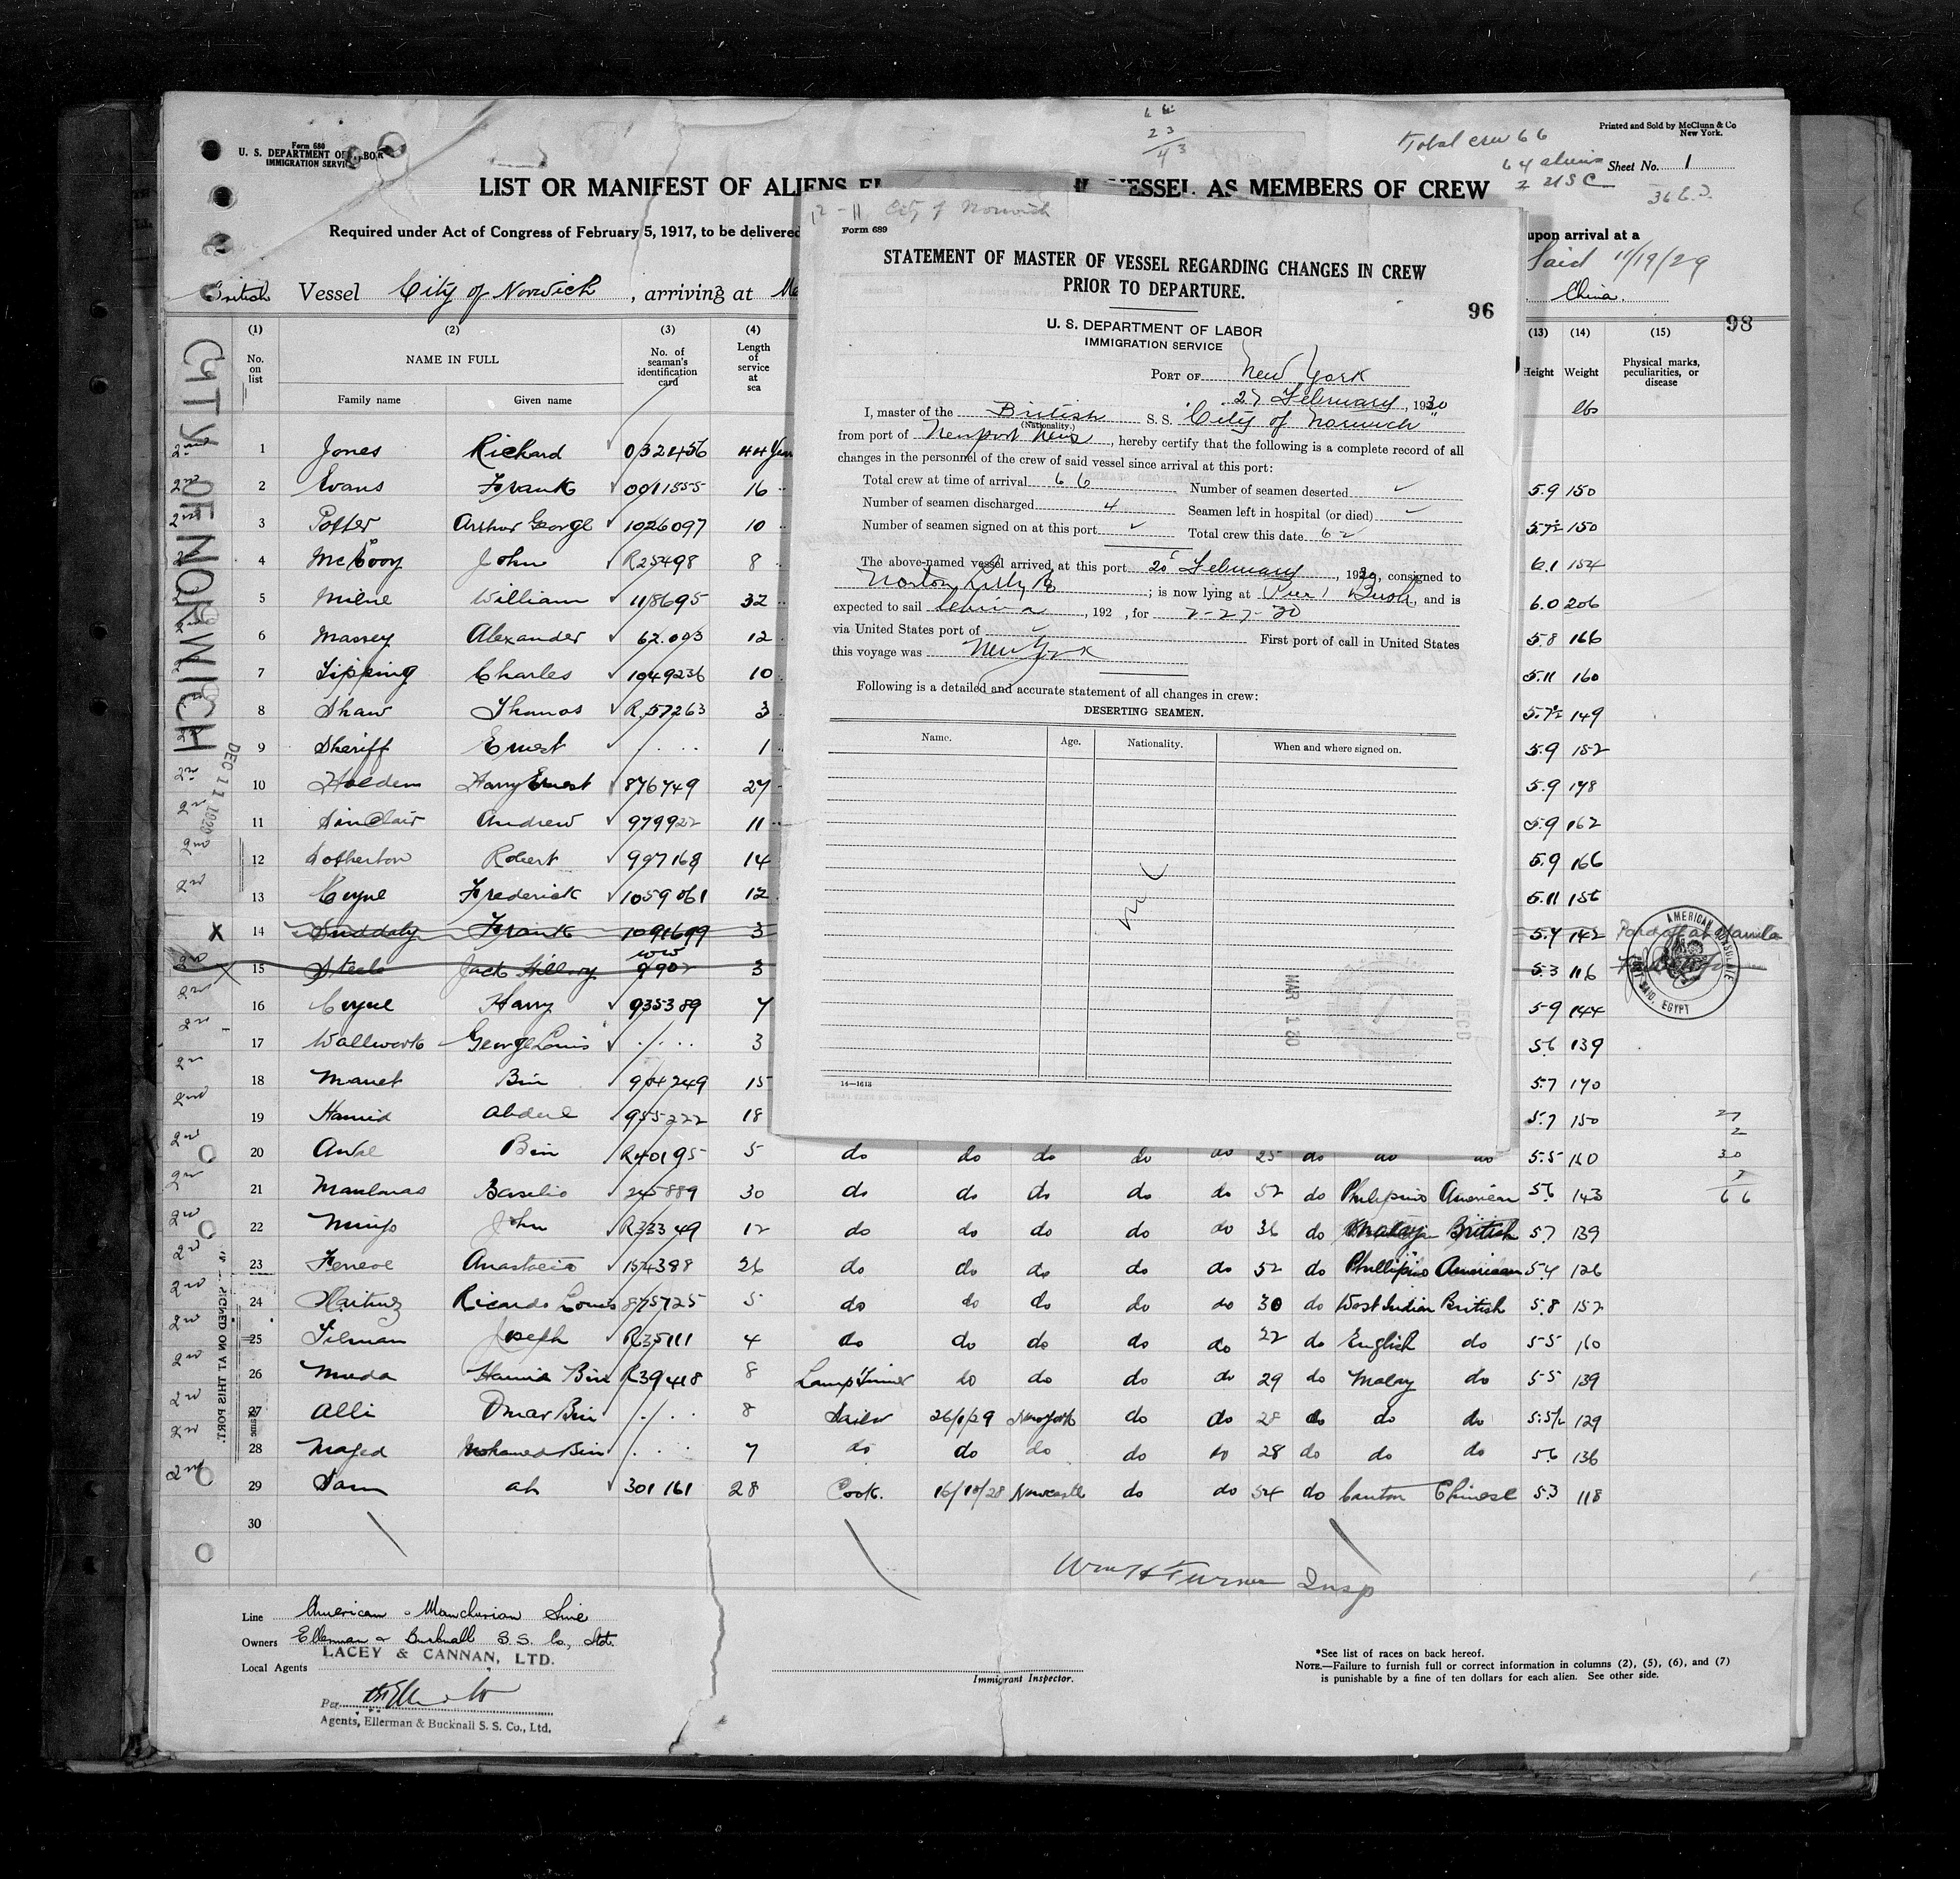 Form 680
U. S. DEPARTMENT OF LABOR
IMMIGRATION SERVICE
Printed and Sold by McClunn & Co
New York.
Total crew 66
64 aliens
2 USC
Sheet No. 1
LIST OR MANIFEST OF ALIENS VESSEL AS MEMBERS OF CREW
Required under Act of Congress of February 5, 1917, to be delivered upon arrival at a
Said 11/19/29
British Vessel City of Norwich, arriving at China.
98
CITY OF NORWICH
DEC 11 1929
(1) (2) (3) (4) (13) (14) (15)
No. on list NAME IN FULL No. of seaman's identification card Length of service at sea Height Weight Physical marks, peculiarities, or disease
Family name Given name lbs
1 Jones Richard 0321456 44 Years
2 Evans Frank 0011555 16 5.9 150
3 Potter Arthur George 1026097 10 5.7½ 150
4 McEvoy John R25498 8 6.1 154
5 Milne William 118695 32 6.0 206
6 Massey Alexander 62.093 12 5.8 166
7 Tipping Charles 1049236 10 5.11 160
8 Shaw Thomas R.57263 3 5.7½ 149
9 Sheriff Ernest 1 5.9 152
10 Holden Harry Ernest 876749 27 5.9 178
11 Sinclair Andrew 979922 11 5.9 162
12 Sotherton Robert 997168 14 5.9 166
13 Coyne Frederick 1059061 12 5.11 156
14 Frank 1091699 3 5.4 142 Paid off at Manila
15 Steele Jack Hillary 9902 3 5.3 116
16 Coyne Harry 935389 7 5.9 144
17 Wallwork George Louis 3 5.6 139
18 Manet Bin 904249 15 5.7 170
19 Hamid Abdul 955222 18 5.7 150
20 Awal Bin R40195 5 do do do do do 25 do do do 5.5 160
21 Basilio 245889 30 do do do do do 52 do Philipino American 5.6 143
22 John R33349 12 do do do do do 36 do Malay British 5.7 139
23 Anastacio 154388 26 do do do do do 52 do Phillipino American 5.4 126
24 Martinez Ricardo Louis 875725 5 do do do do do 30 do West Indian British 5.8 152
25 Tilman Joseph R35111 4 do do do do do 22 do English do 5.5 160
26 Muda Hamid Bin R39418 8 Lamp Trimer do do do do 29 do Malay do 5.5 139
27 Alli Omar Bin 8 Sailor 26/1/29 New York do do 28 do do do 5.5½ 129
28 Majed Mohamed Bin 7 do do do do do 28 do do do 5.6 136
29 Sam ah 301161 28 Cook. 16/10/28 Newcastle do do 54 do Canton Chinese 5.3 118
30
AMERICAN CONSULATE
PORT SAID, EGYPT
SIGNED ON AT THIS PORT.
Wm H Turner Insp
Line American & Manchurian Line
Owners Ellerman & Bucknall S.S. Co., Ltd.
LACEY & CANNAN, LTD.
Local Agents
Per
Agents, Ellerman & Bucknall S. S. Co., Ltd.
Immigrant Inspector.
*See list of races on back hereof.
NOTE.—Failure to furnish full or correct information in columns (2), (5), (6), and (7)
is punishable by a fine of ten dollars for each alien. See other side.
12-11 City of Norwich
Form 689
STATEMENT OF MASTER OF VESSEL REGARDING CHANGES IN CREW
PRIOR TO DEPARTURE.
96
U. S. DEPARTMENT OF LABOR
IMMIGRATION SERVICE
PORT OF New York
27 February, 1930
I, master of the British S. S. "City of Norwich"
(Nationality.)
from port of Newport News, hereby certify that the following is a complete record of all
changes in the personnel of the crew of said vessel since arrival at this port:
Total crew at time of arrival 66 Number of seamen deserted
Number of seamen discharged 4 Seamen left in hospital (or died)
Number of seamen signed on at this port Total crew this date 62
The above-named vessel arrived at this port 20 February, 1930, consigned to
Norton Lilly Co; is now lying at Pier 1 Bush, and is
expected to sail China, 192 , for 2-27-30
via United States port of First port of call in United States
this voyage was New York
Following is a detailed and accurate statement of all changes in crew:
DESERTING SEAMEN.
Name. Age. Nationality. When and where signed on.
MAR 1 30
REC'D
14—1613